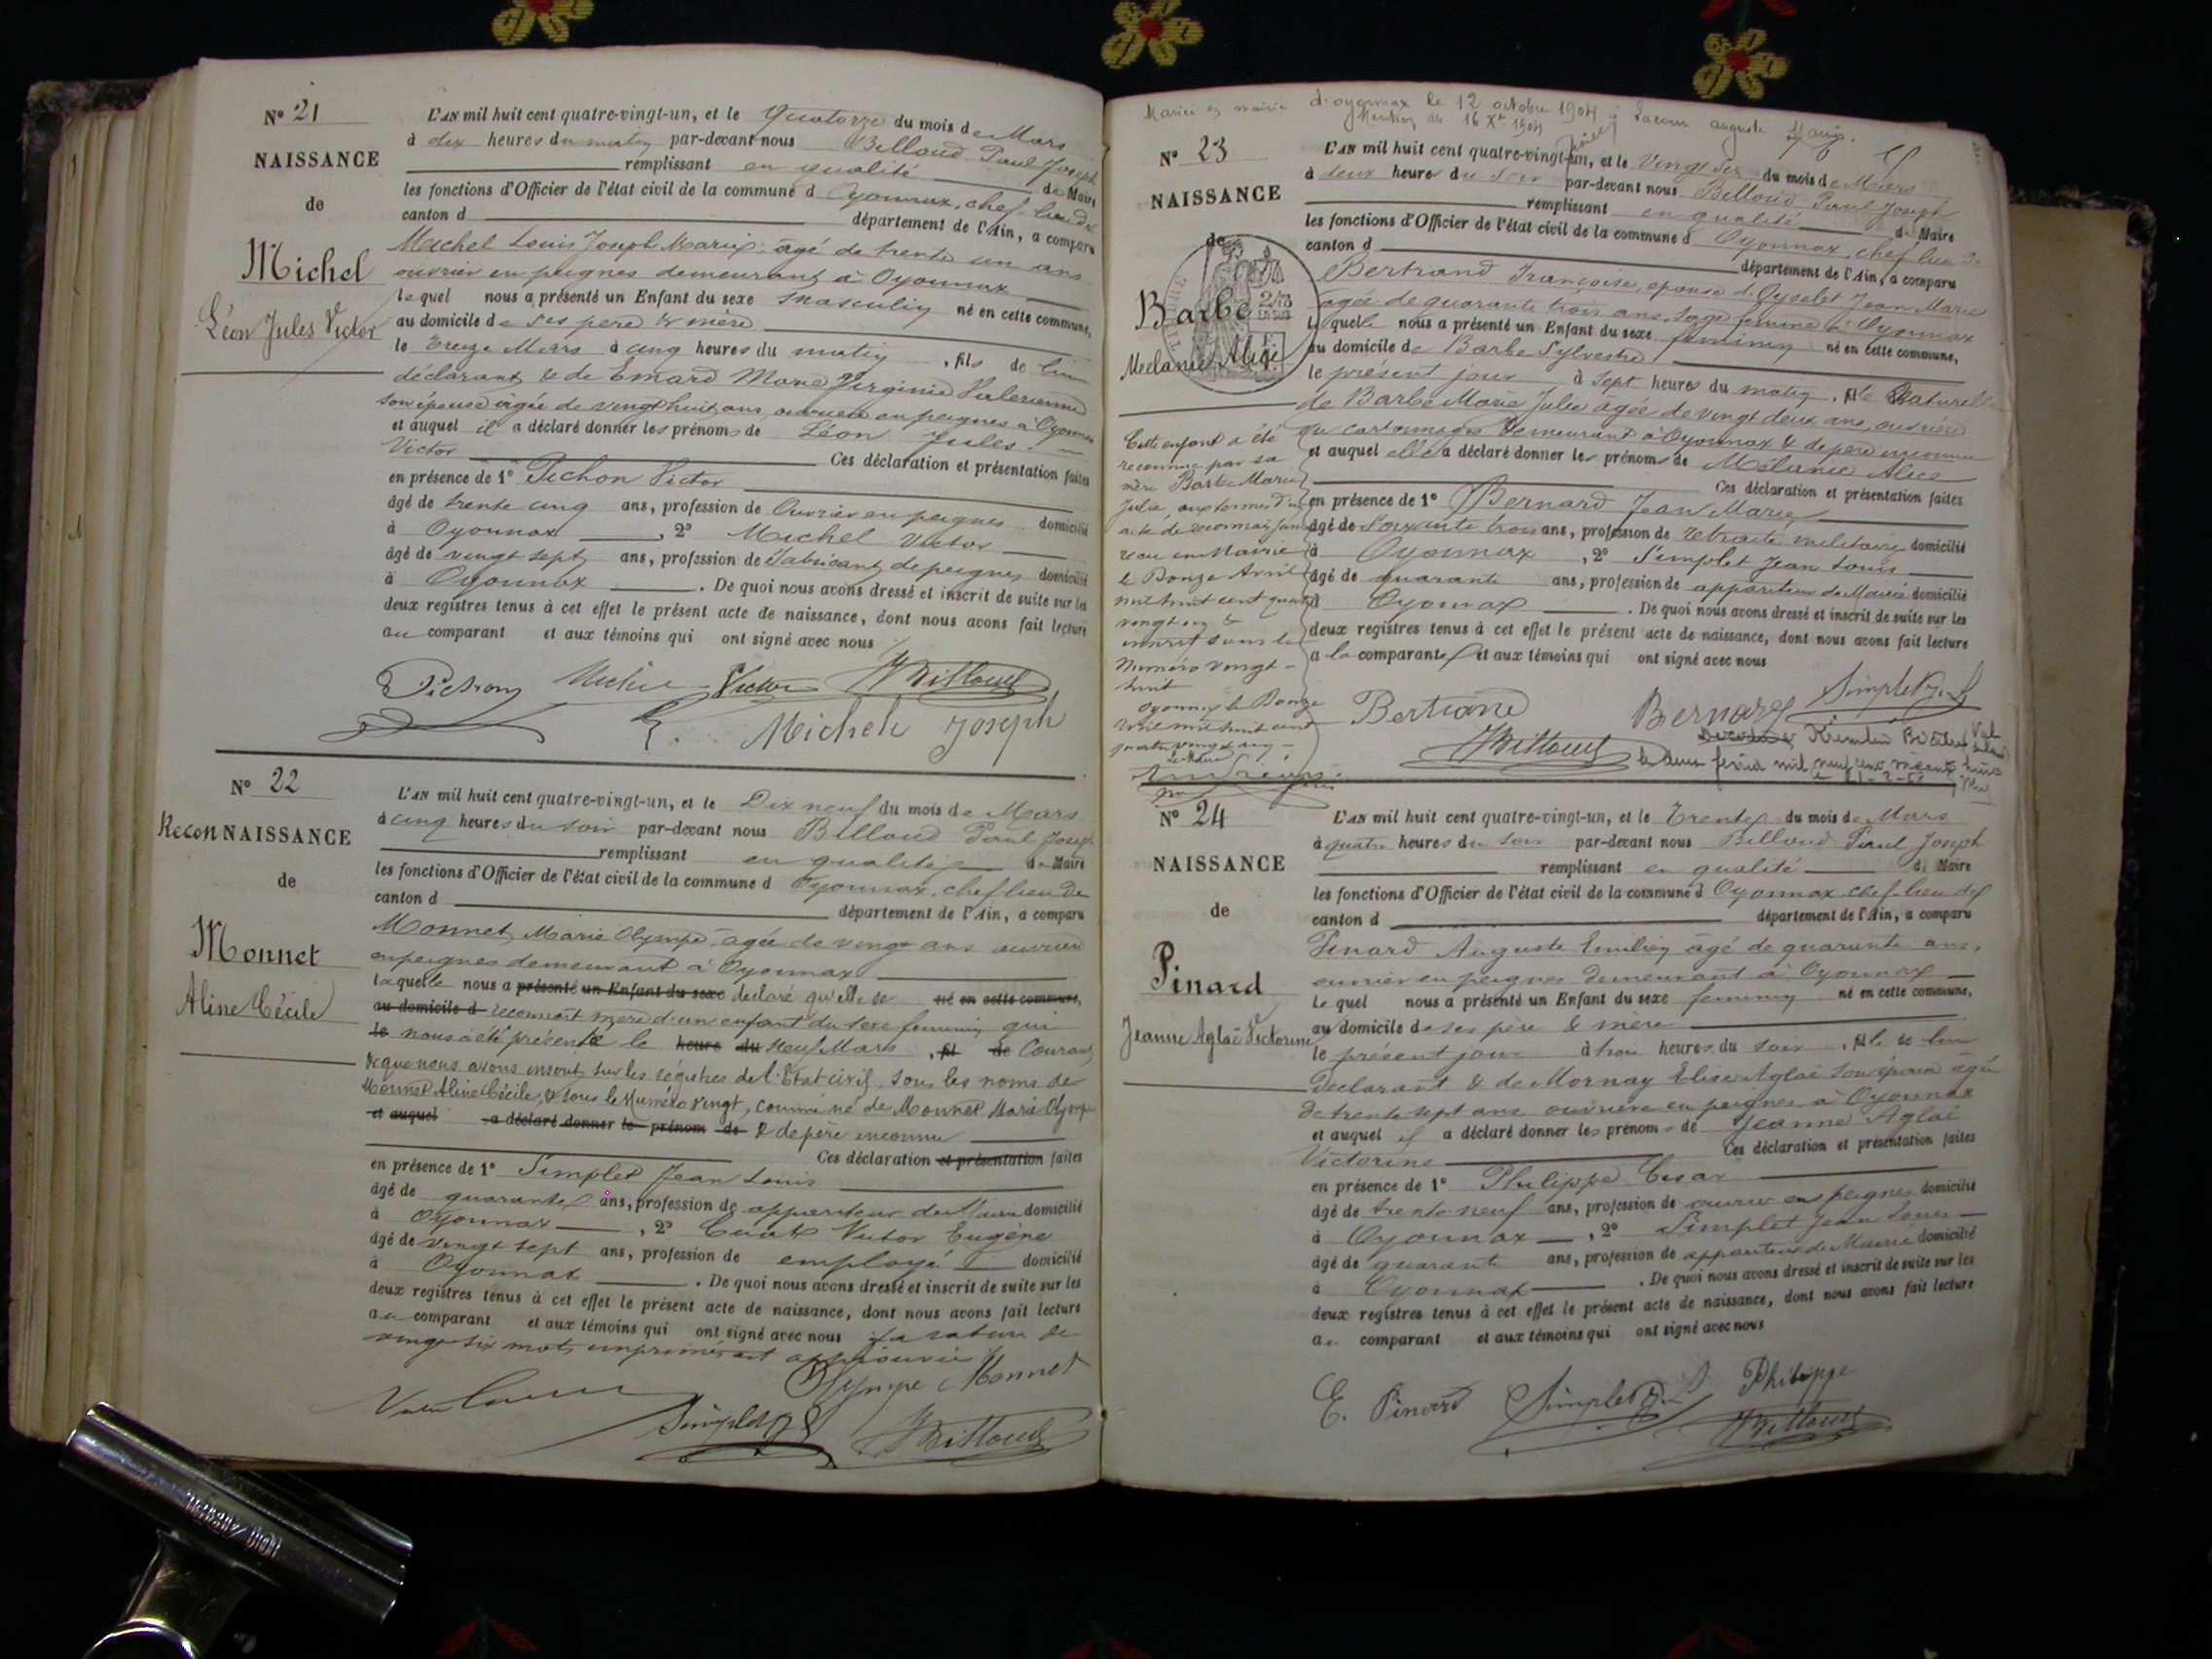 N° 21
NAISSANCE
de
Michel
Léon Jules Victor
L'AN mil huit cent quatre-vingt-un, et le Quatorze du mois de Mars
à dix heures du matin par-devant nous Billoud Paul Joseph
remplissant en qualité de Maire
les fonctions d'Officier de l'état civil de la commune d Oyonnax, chef lieu de
canton d département de l'Ain, a comparu
Michel Louis Joseph Marie âgé de trente un ans
ouvrier en peignes demeurant à Oyonnax
lequel nous a présenté un Enfant du sexe masculin né en cette commune,
au domicile de ses père & mère
le Treize Mars à cinq heures du matin, fils de lui
déclarant & de Emard Marie Virginie Valérienne
son épouse âgée de vingt huit ans, ouvrière en peignes à Oyonnax
et auquel il a déclaré donner les prénoms de Léon Jules
Victor Ces déclaration et présentation faites
en présence de 1° Pichon Victor
âgé de trente cinq ans, profession de Ouvrier en peignes domicilié
à Oyonnax, 2° Michel Victor
âgé de vingt sept ans, profession de Fabricant de peignes domicilié
à Oyonnax. De quoi nous avons dressé et inscrit de suite sur les
deux registres tenus à cet effet le présent acte de naissance, dont nous avons fait lecture
au comparant et aux témoins qui ont signé avec nous
Pichon Michel Victor Billoud
Michel Joseph
N° 22
Recon NAISSANCE
de
Monnet
Aline Cécile
L'AN mil huit cent quatre-vingt-un, et le Dix neuf du mois de Mars
à cinq heures du soir par-devant nous Billoud Paul Joseph
remplissant en qualité de Maire
les fonctions d'Officier de l'état civil de la commune d Oyonnax, chef lieu de
canton d département de l'Ain, a comparu
Monnet Marie Olympe âgée de vingt ans ouvrière
en peignes demeurant à Oyonnax
laquelle nous a présenté un Enfant du sexe declaré qu'elle se né en cette commune,
au domicile d reconnait mère d'un enfant du sexe feminin qui
le nous a été présenté le heure du Neuf Mars, fil de Courant
& que nous avons inscrit sur les registres de l'Etat civil sous les noms de
Monnet Aline Cécile, & sous le Numéro vingt, comme né de Monnet Marie Olympe
et auquel a déclaré donner le prénom de & de père inconnu
Ces déclaration et présentation faites
en présence de 1° Simplet Jean Louis
âgé de quarante ans, profession de appariteur de Mairie domicilié
à Oyonnax, 2° Victor Eugène
âgé de vingt sept ans, profession de employé domicilié
à Oyonnax. De quoi nous avons dressé et inscrit de suite sur les
deux registres tenus à cet effet le présent acte de naissance, dont nous avons fait lecture
au comparant et aux témoins qui ont signé avec nous la rature de
vingt six mots imprimés est approuvée
Olympe Monnet
Simplet Billoud
Mariée en mairie d'Oyonnax le 12 octobre 1904 à Lacour auguste
Mention du 16 Xbre 1904
N° 23
NAISSANCE
de
Barbe
Mélanie Alice
L'AN mil huit cent quatre-vingt-un, et le Vingt Six du mois de Mars
à deux heures du soir par-devant nous Billoud Paul Joseph
remplissant en qualité de Maire
les fonctions d'Officier de l'état civil de la commune d Oyonnax, chef lieu de
canton d département de l'Ain, a comparu
Bertrand Françoise, epouse d'Oyselet Jean Marie
âgée de quarante trois ans, Sage femme à Oyonnax
laquelle nous a présenté un Enfant du sexe feminin né en cette commune,
au domicile de Barbe Sylvestre
le présent jour à sept heures du matin, fille Naturelle
de Barbe Marie Julie âgée de vingt deux ans, ouvrière
en cartonnages demeurant à Oyonnax & de père inconnu
et auquel elle a déclaré donner les prénoms de Mélanie Alice
Ces déclaration et présentation faites
en présence de 1° Bernard Jean Marie
âgé de Soixante trois ans, profession de retraité militaire domicilié
à Oyonnax, 2° Simplet Jean Louis
âgé de quarante ans, profession de appariteur de Mairie domicilié
à Oyonnax. De quoi nous avons dressé et inscrit de suite sur les
deux registres tenus à cet effet le présent acte de naissance, dont nous avons fait lecture
a la comparante et aux témoins qui ont signé avec nous
Bertrand Bernard Simplet J. L
Billoud
Cette enfant a été
reconnue par sa
mère Barbe Marie
Julie, aux termes d'un
acte de reconnaissance
reçu en Mairie
le Douze Avril
mil huit cent quatre
vingt un &
inscrit sous le
Numéro vingt
huit
Oyonnax le Douze
Avril mil huit cent
quatre vingt un
Le Maire
Décédée Kremlin Bicêtre
le deux février mil neuf cent
N° 24
NAISSANCE
de
Pinard
Jeanne Aglaé Victorine
L'AN mil huit cent quatre-vingt-un, et le Trente du mois de Mars
à quatre heures du soir par-devant nous Billoud Paul Joseph
remplissant en qualité de Maire
les fonctions d'Officier de l'état civil de la commune d Oyonnax chef lieu de
canton d département de l'Ain, a comparu
Pinard Auguste Emilien âgé de quarante ans,
ouvrier en peignes demeurant à Oyonnax
lequel nous a présenté un Enfant du sexe feminin né en cette commune,
au domicile de ses père & mère
le présent jour à trois heures du soir, fille de lui
Declarant & de Mornay Elise Aglaé son épouse âgée
de trente sept ans ouvrière en peignes à Oyonnax
et auquel il a déclaré donner les prénoms de Jeanne Aglaé
Victorine Ces déclaration et présentation faites
en présence de 1° Philippe César
âgé de trente neuf ans, profession de ouvrier en peignes domicilié
à Oyonnax, 2° Simplet Jean Louis
âgé de quarante ans, profession de appariteur de Mairie domicilié
à Oyonnax. De quoi nous avons dressé et inscrit de suite sur les
deux registres tenus à cet effet le présent acte de naissance, dont nous avons fait lecture
au comparant et aux témoins qui ont signé avec nous
E. Pinard Simplet J. L Philippe
Billoud